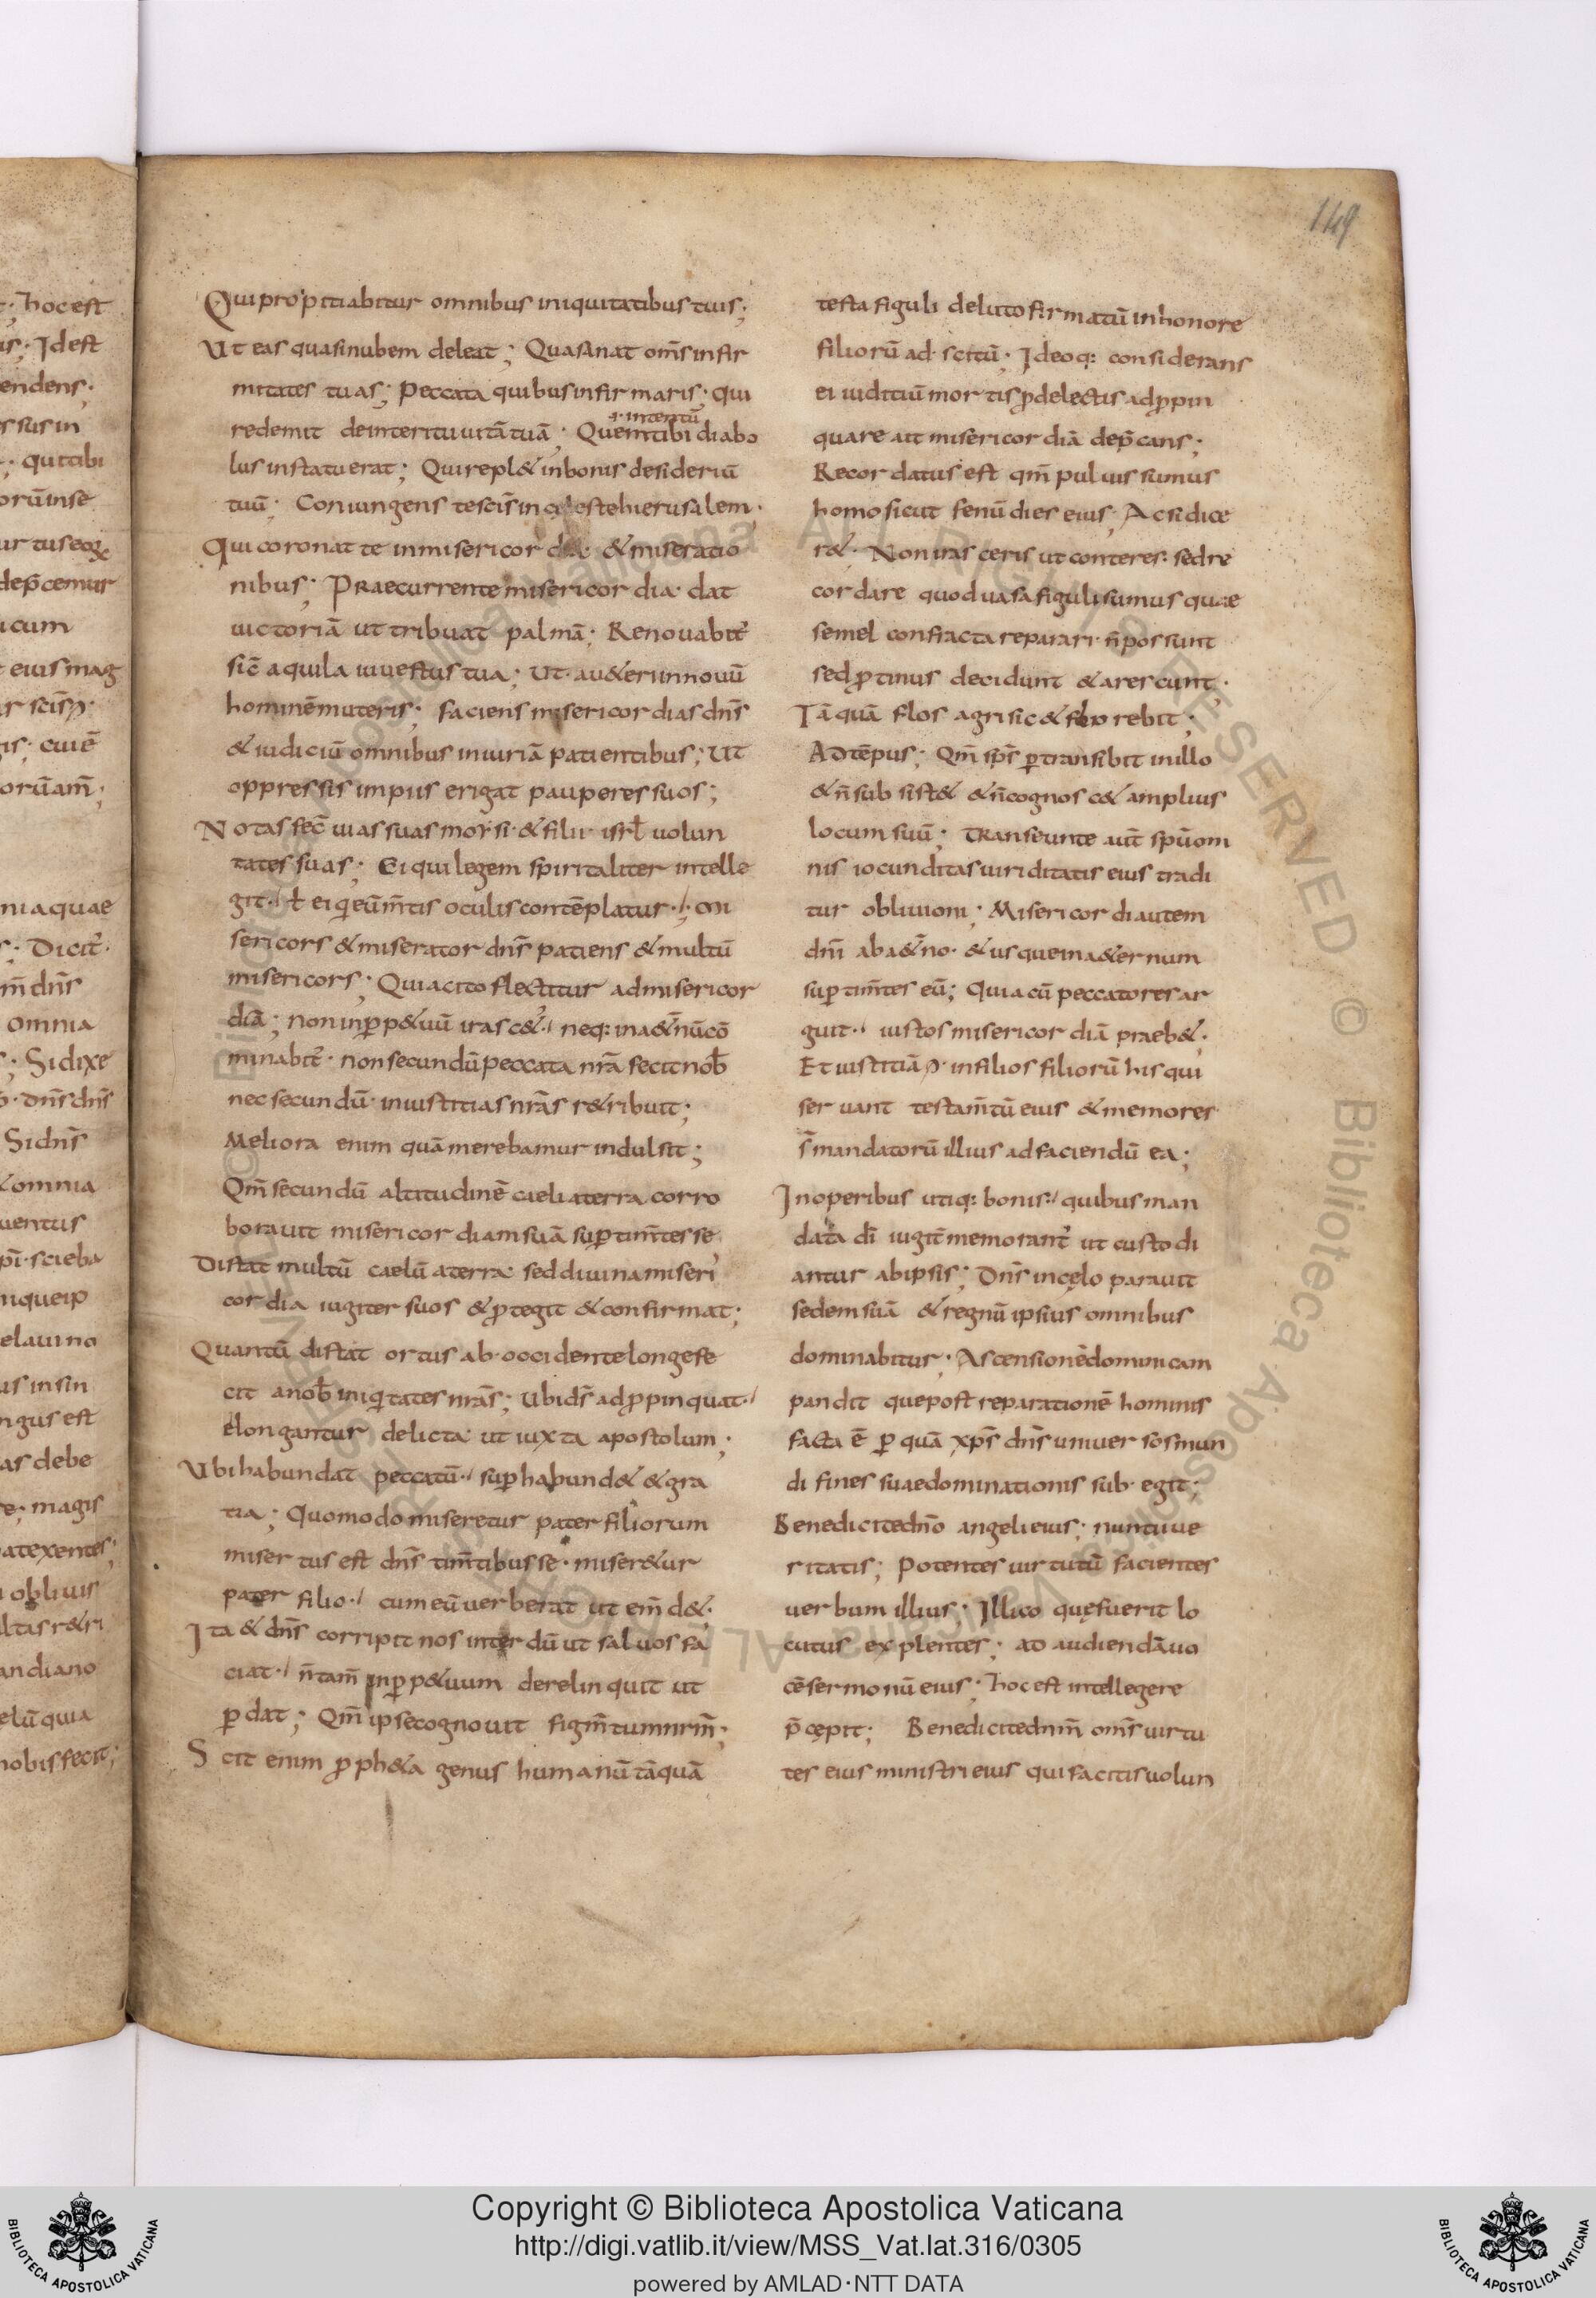 149
Qui propitiabitur omnibus iniquitatibus tuis;
Ut eas quasi nubem deleat; Qua sanat om̄s infir
mitates tuas; Peccata quibus infirmaris; qui
redemit de interitu uitā tuā; Quem tibi diabo
lus instatuerat; Qui repl& in bonis desideriū
tuū; Coniungens te sc̄is in celeste hierusalem;
Qui coronat te in misericordia & miseratio
nibus; Praecurrente misericordia dat
uictoriā ut tribuat palmā; Renouabit̄
sic̄ aquila iuuentus tua; Ut au&eri in nouū
hominē muteris; faciens misericordias dn̄s
& iudiciū omnibus iniuriā patientibus; Ut
oppressis impiis erigat pauperes suos;
Notas fec̄ uias suas morsi & filii isrl̄ uolun
tates suas; Ei qui legem spiritaliter intelle
git ł ei qi eū m̄tis oculis contēplatur; mi
sericors & miserator dn̄s patiens & multū
misericors; Quia cito flectitur ad misericor
diā; non in pp&uū irasc&; neq: in a&n̄ū cō
minabit̄. non secundū peccata nr̄a fecit nob̄
nec secundū iniustitias nr̄as r&ribuit;
Meliora enim quā merebamur indulsit;
Qm̄ secundū altitudinē caeli a terra corro
borauit misericordiam suā sup tim̄tes se
Distat multū caelū a terra sed diuina miseri
cordia iugiter suos & ptegit & confirmat;
Quantū distat ortus ab occidente longe fe
cit a nob̄ iniqitates nr̄as; Ubi ds̄ adppinquat
elongantur delicta ut iuxta apostolum;
Ubi habundat peccatū sup habund& & gra
tia; Quomodo miseretur pater filiorum
misertus est dn̄s tim̄tibus se. miser&ur
pater filio cum eū uerberat ut em̄d&;
Ita & dn̄s corripit nos interdū ut saluos fa
ciat n̄ tam̄ in pp&uum derelinquit ut
pdat; Qm̄ ipse cognouit figm̄tum nrm̄;
Scit enim pph&a genus humanū tāquā
testa figuli de luto firmatū in honore
filiorū adscitū; Ideoq: considerans
ei iuditiū mortis p delectis adppin
quare ait misericordiā dep̄cans;
Recordatus est qm̄ puluis sumus
homo sicut fenū dies eius; Acsi dice
r&. Non irasceris ut conteres. sed re
cordare quod uasa figuli sumus quae
semel confracta reparari n̄ possunt
sed ptinus decidunt & arescunt;
Tāquā flos agri sic & florebit;
Ad tēpus; Qm̄ sps̄ ptransibit in illo
& n̄ subsist& & n̄ cognosc& amplius
locum suū; transeunte aut̄ spū om
nis iocunditas uiriditatis eius tradi
tur obliuioni; Misericordi autem
dm̄ ab a&n̄o. & usque in a&ernum
sup tim̄tes eū; Quia cū peccatores ar
guit iustos misericordiā praeb&;
Et iustitiā in filios filiorū his qui
seruant testam̄tū eius & memores
s̄ mandatorū illius ad faciendū ea;
In operibus utiq: bonis quibus man
data di̅ iugit̄ memorant̄ ut custodi
antur ab ipsis; Dn̄s in cęlo parauit
sedem suā & regnū ipsius omnibus
dominabitur; Ascensionē dominicam
pandit que post reparationē hominis
facta ē p quā xps̄ dn̄s uniuersos mun
di fines suae dominationis sub egit;
Benedicite dn̄o angeli eius; nuntii ue
ritatis; Potentes uirtutū facientes
uerbum illius; Illico quę fuerit lo
cutus explentes; ad audiendā uo
cē sermonū eius; hoc est intellegere
p̄cępit; Benedicite dnm̄ om̄s uirtu
tes eius ministri eius qui facitis uolun
Copyright © Biblioteca Apostolica Vaticana
http://digi.vatlib.it/view/MSS_Vat.lat.316/0305
powered by AMLAD·NTT DATA
BIBLIOTECA APOSTOLICA VATICANA
BIBLIOTECA APOSTOLICA VATICANA